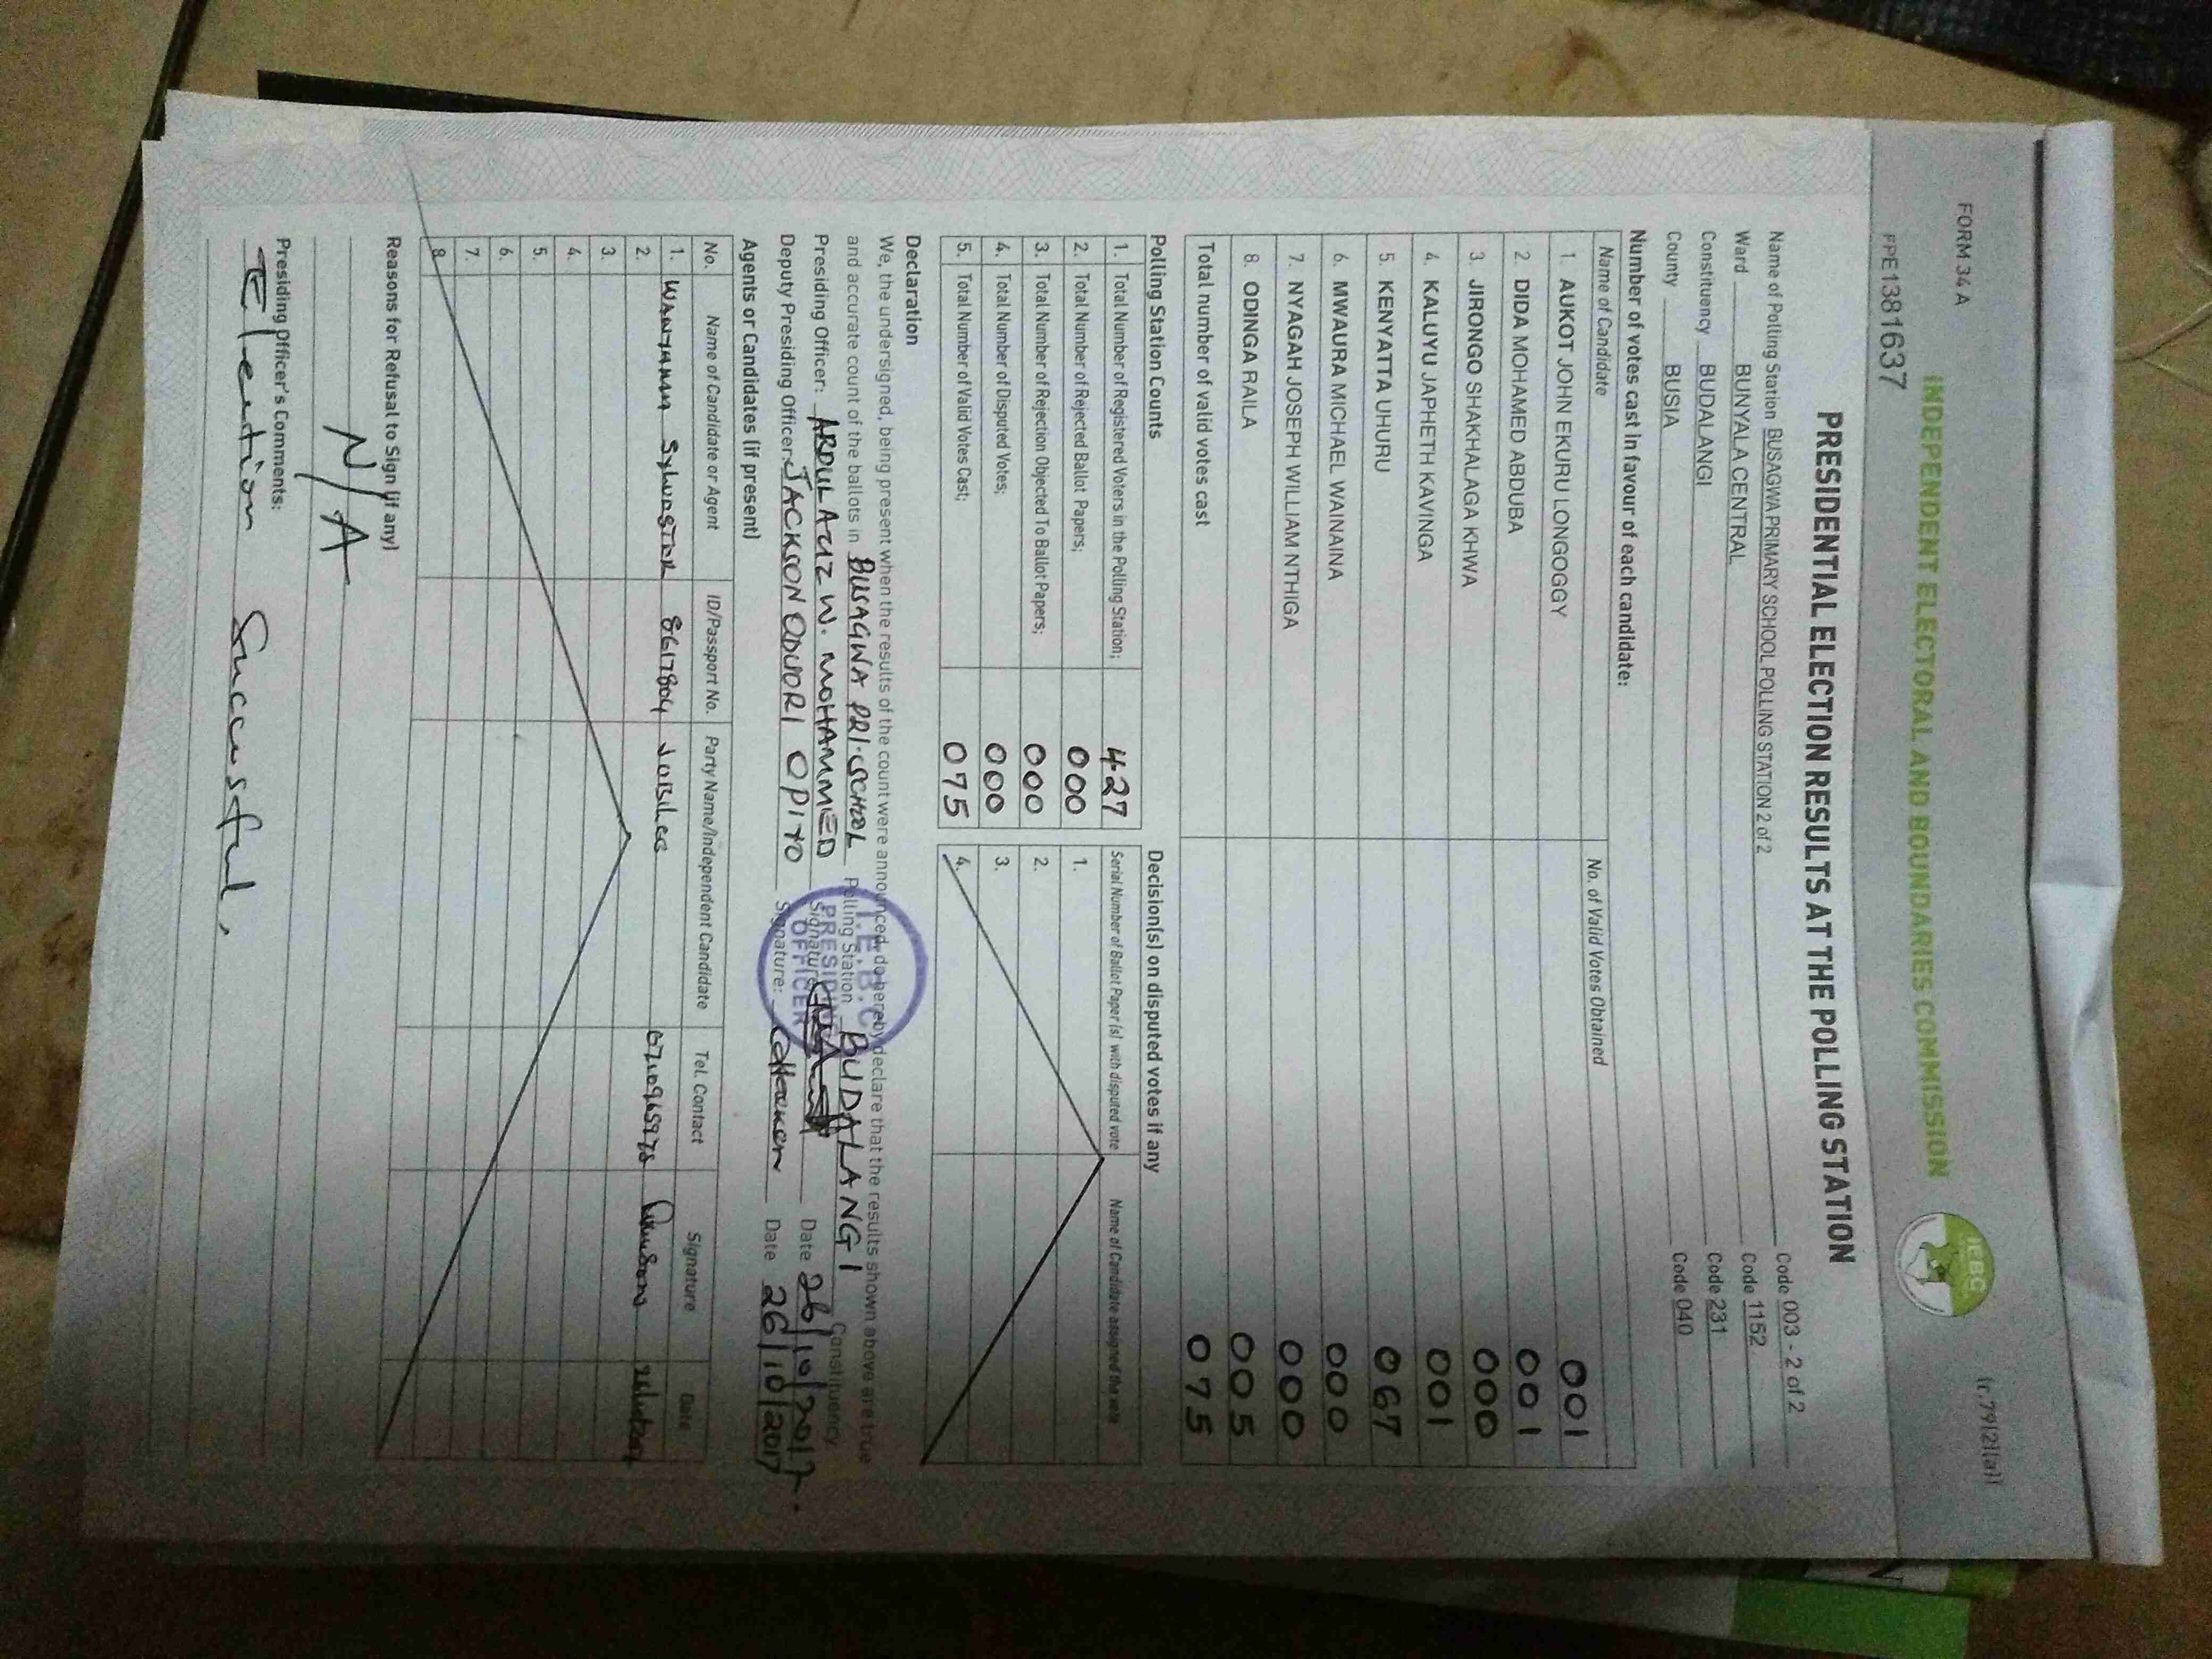 FORM 34 A
(r.79(2)(a))
INDEPENDENT ELECTORAL AND BOUNDARIES COMMISSION
IEBC
PPE1381637
PRESIDENTIAL ELECTION RESULTS AT THE POLLING STATION
Name of Polling Station BUSAGWA PRIMARY SCHOOL POLLING STATION 2 of 2 Code 003 - 2 of 2
Ward BUNYALA CENTRAL Code 1152
Constituency BUDALANGI Code 231
County BUSIA Code 040
Number of votes cast in favour of each candidate:
Name of Candidate No. of Valid Votes Obtained
1. AUKOT JOHN EKURU LONGOGGY 001
2. DIDA MOHAMED ABDUBA 001
3. JIRONGO SHAKHALAGA KHWA 000
4. KALUYU JAPHETH KAVINGA 001
5. KENYATTA UHURU 067
6. MWAURA MICHAEL WAINAINA 000
7. NYAGAH JOSEPH WILLIAM NTHIGA 000
8. ODINGA RAILA 005
Total number of valid votes cast 075
Polling Station Counts
1. Total Number of Registered Voters in the Polling Station; 427
2. Total Number of Rejected Ballot Papers; 000
3. Total Number of Rejection Objected To Ballot Papers; 000
4. Total Number of Disputed Votes; 000
5. Total Number of Valid Votes Cast; 075
Decision(s) on disputed votes if any
Serial Number of Ballot Paper (s) with disputed vote Name of Candidate assigned the vote
1.
2.
3.
4.
Declaration
We, the undersigned, being present when the results of the count were announced, do hereby declare that the results shown above are true
and accurate count of the ballots in BUSAGWA PRI-SCHOOL Polling Station BUDALANGI Constituency
Presiding Officer: ABDUL AZIZ W. MOHAMMED Signature: Date 26/10/2017.
Deputy Presiding Officer: JACKSON ODUORI OPIYO Signature: Date 26/10/2017
I.E.B.C
PRESIDING
OFFICER
Agents or Candidates (if present)
No. Name of Candidate or Agent ID/Passport No. Party Name/Independent Candidate Tel. Contact Signature Date
1. WANYAMA SYLVESTER 8617804 JUBILEE
2.
3.
4.
5.
6.
7.
8.
Reasons for Refusal to Sign (if any)
N/A
Presiding Officer's Comments:
Election Successful.